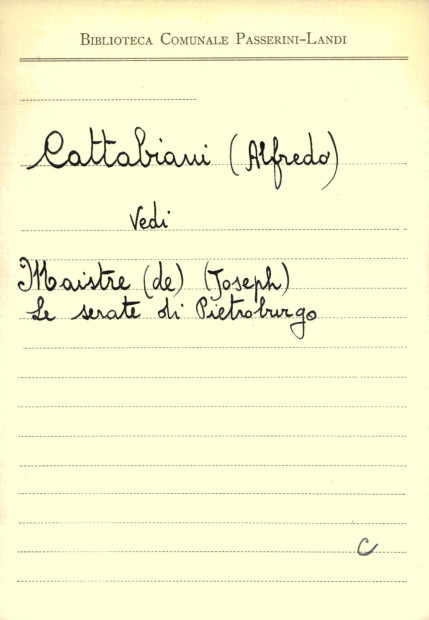 BIBLIOTECA COMUNALE PASSERINI-LANDI
Cattabiani (Alfredo)
Vedi
Maistre (de) (Joseph)
Le serate di Pietroburgo
C